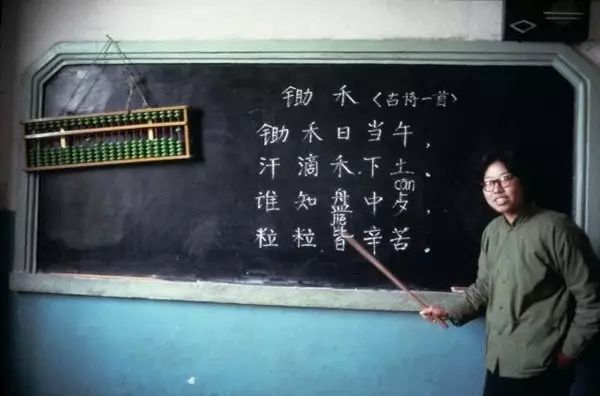 锄禾〈古诗一首〉
锄禾日当午，
汗滴禾下土。
cān
谁知盘中歺，
粒粒皆辛苦。